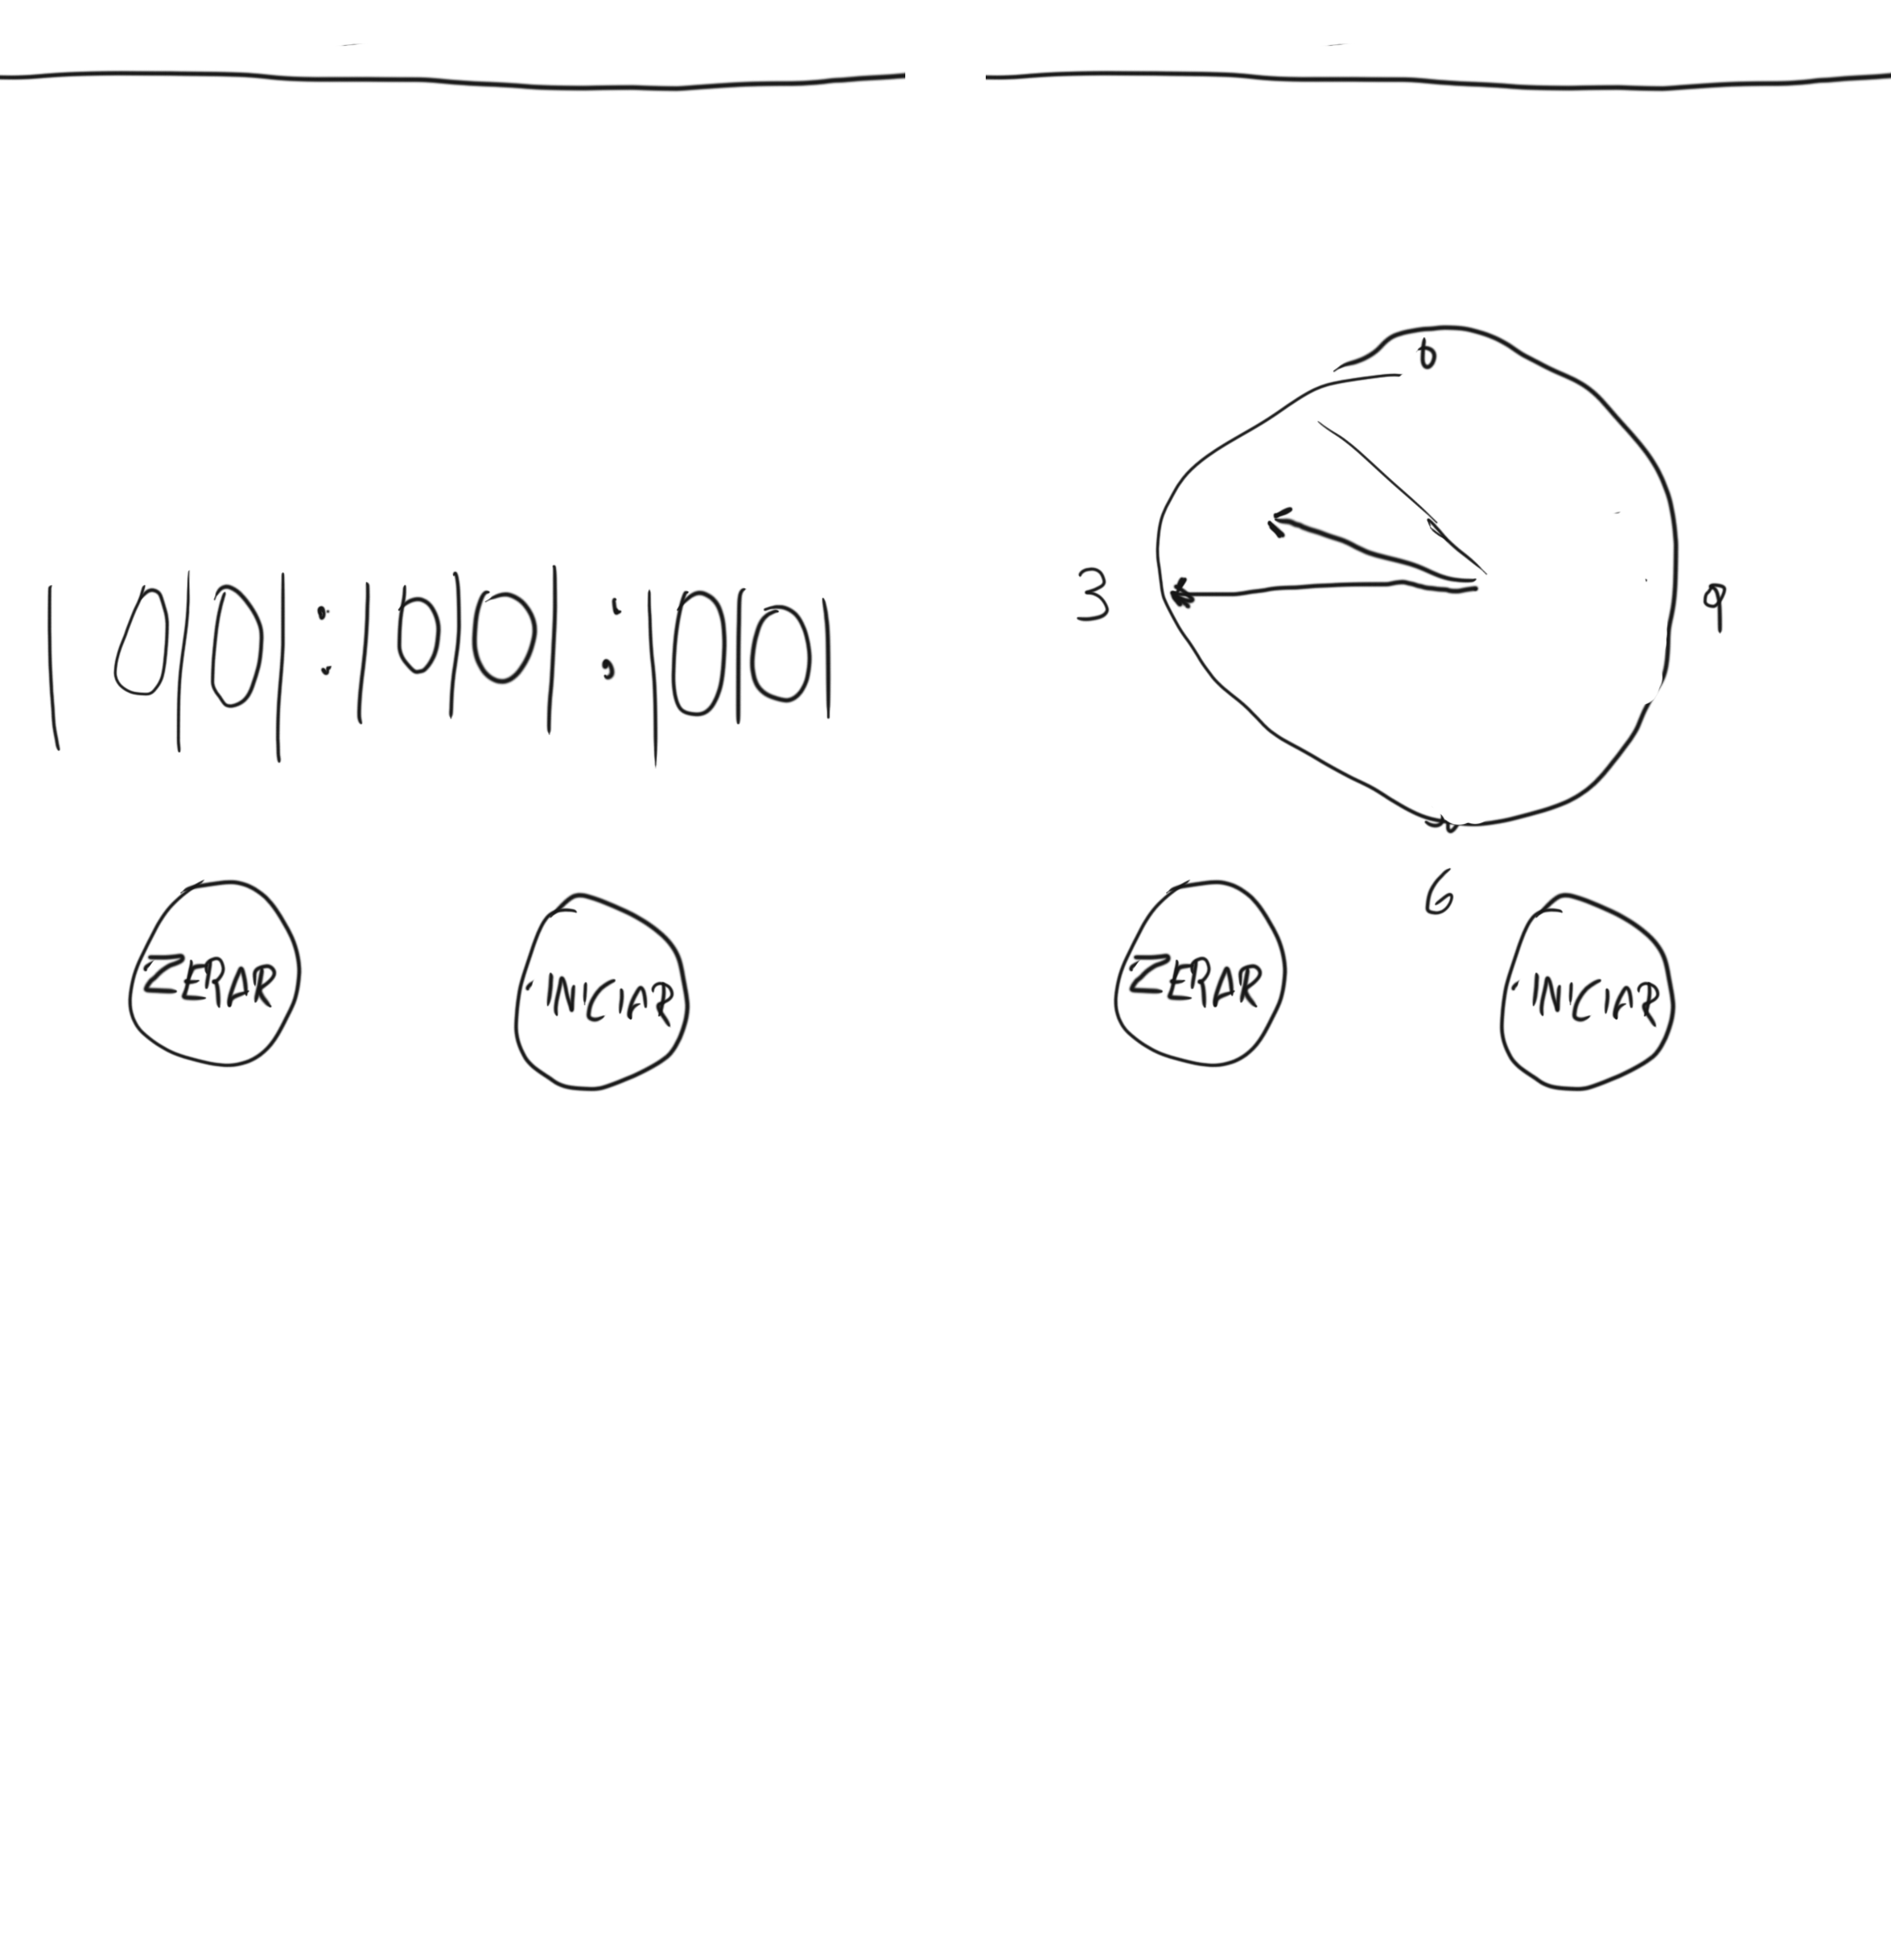 |0|0|:|0|0|:|0|0|
ZERAR
INICIAR
0
3
9
6
ZERAR
INICIAR